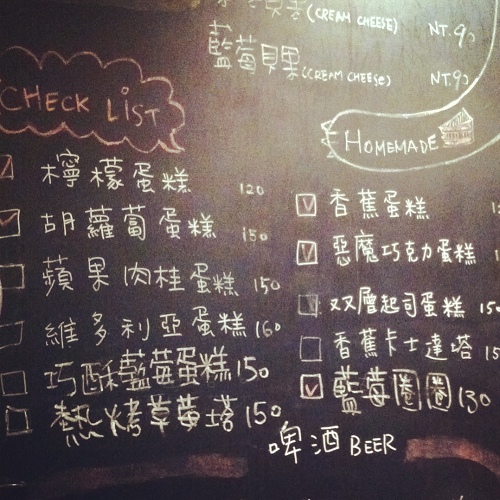 (CREAM CHEESE) NT.90
藍莓貝果(CREAM CHEESE) NT.90
CHECK LIST
檸檬蛋糕 120
胡蘿蔔蛋糕 150
蘋果肉桂蛋糕 150
維多利亞蛋糕 160
巧酥藍莓蛋糕 150
熱烤草莓塔 150
HOMEMADE
香蕉蛋糕
惡魔巧克力蛋糕
双層起司蛋糕
香蕉卡士達塔
藍莓圈圈 130
啤酒 BEER